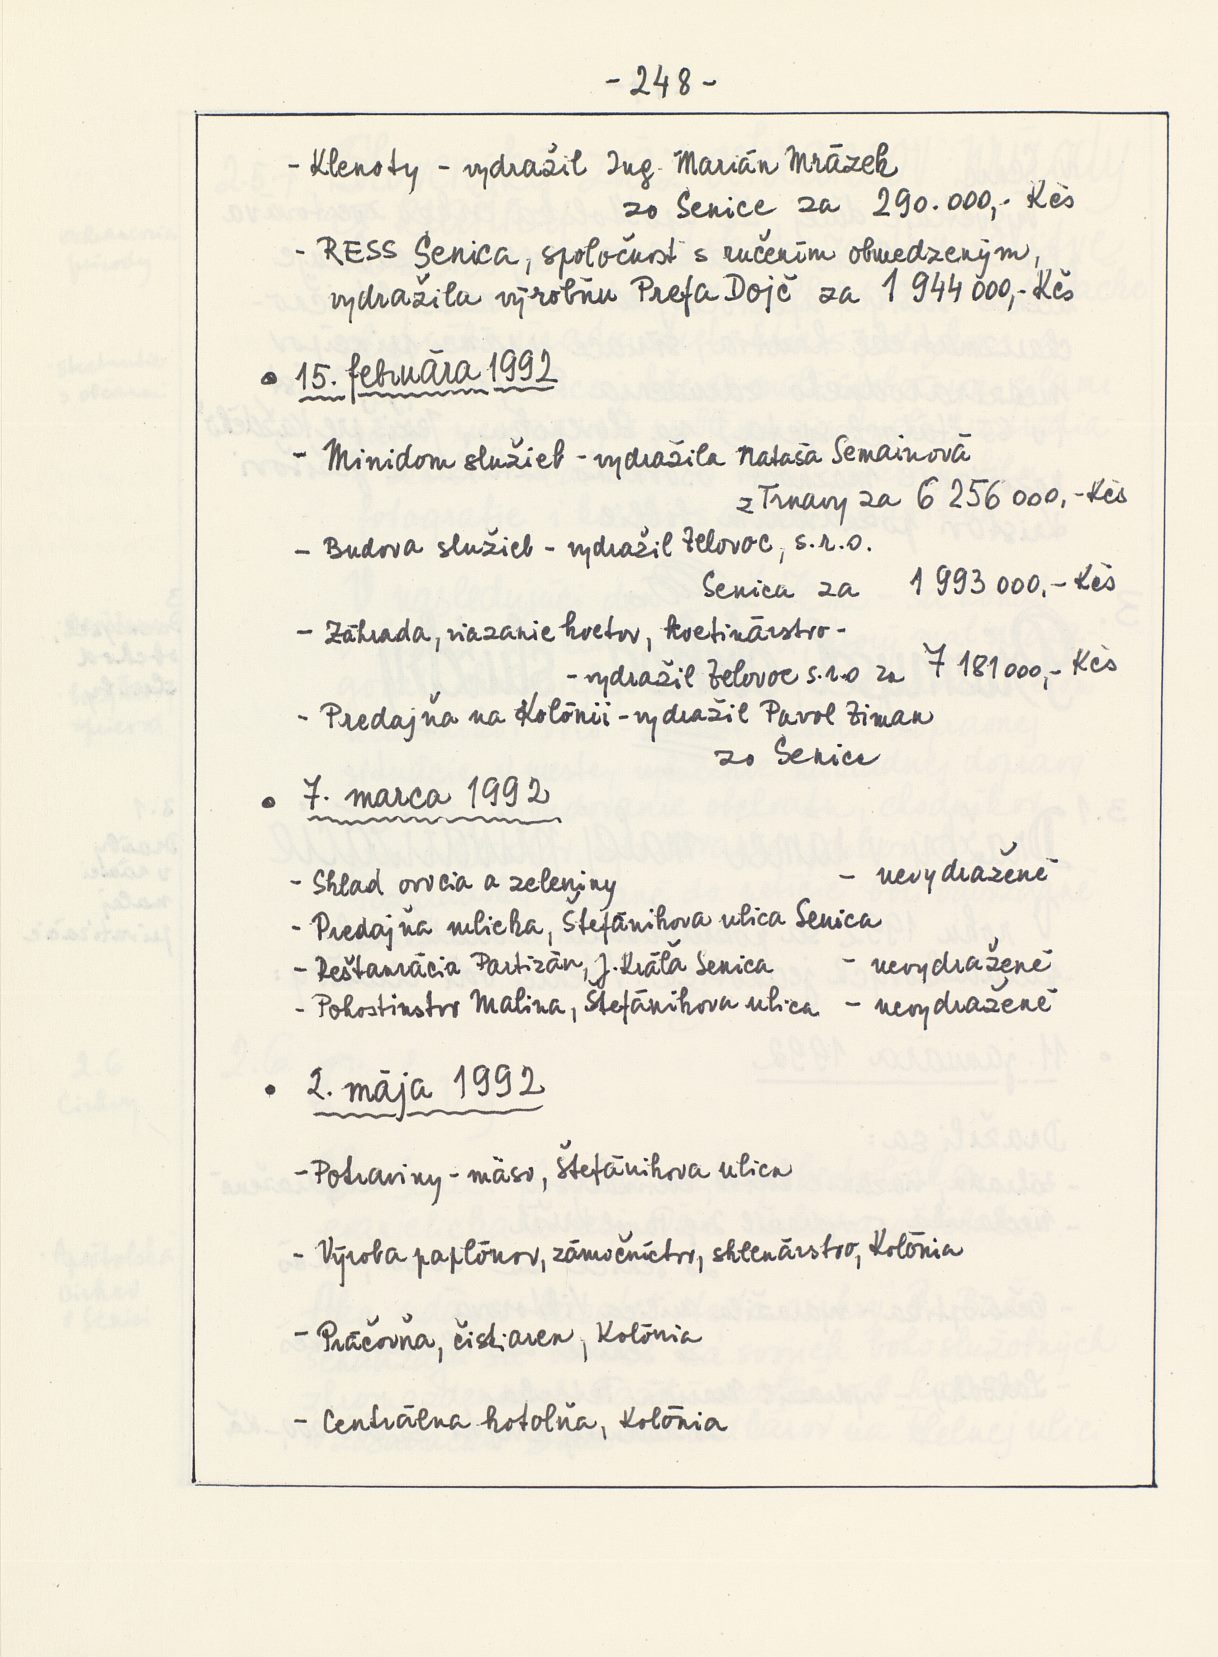 - 248 -
- Klenoty - vydražil Ing. Marián Mrázek
zo Senice za 290.000,- Kčs
- RESS Senica, spoločnosť s ručením obmedzeným,
vydražila výrobňu Prefa Dojč za 1 944 000,- Kčs
• 15. februára 1992
- Minidom služieb - vydražila Nataša Semainová
z Trnavy za 6 256 000,- Kčs
- Budova služieb - vydražil Zelovoc, s.r.o.
Senica za 1 993 000,- Kčs
- Záhrada, viazanie kvetov, kvetinárstvo -
- vydražil Zelovoc s.r.o za 7 181 000,- Kčs
- Predajňa na Kolónii - vydražil Pavol Ziman
zo Senice
• 7. marca 1992
- Sklad ovocia a zeleniny - nevydražené
- Predajňa mlieka, Štefánikova ulica Senica
- Reštaurácia Partizán, J. Kráľa Senica - nevydražené
- Pohostinstvo Malina, Štefánikova ulica - nevydražené
• 2. mája 1992
- Potraviny - mäso, Štefánikova ulica
- Výroba paplónov, zámočníctvo, sklenárstvo, Kolónia
- Práčovňa, čistiareň, Kolónia
- Centrálna kotolňa, Kolónia